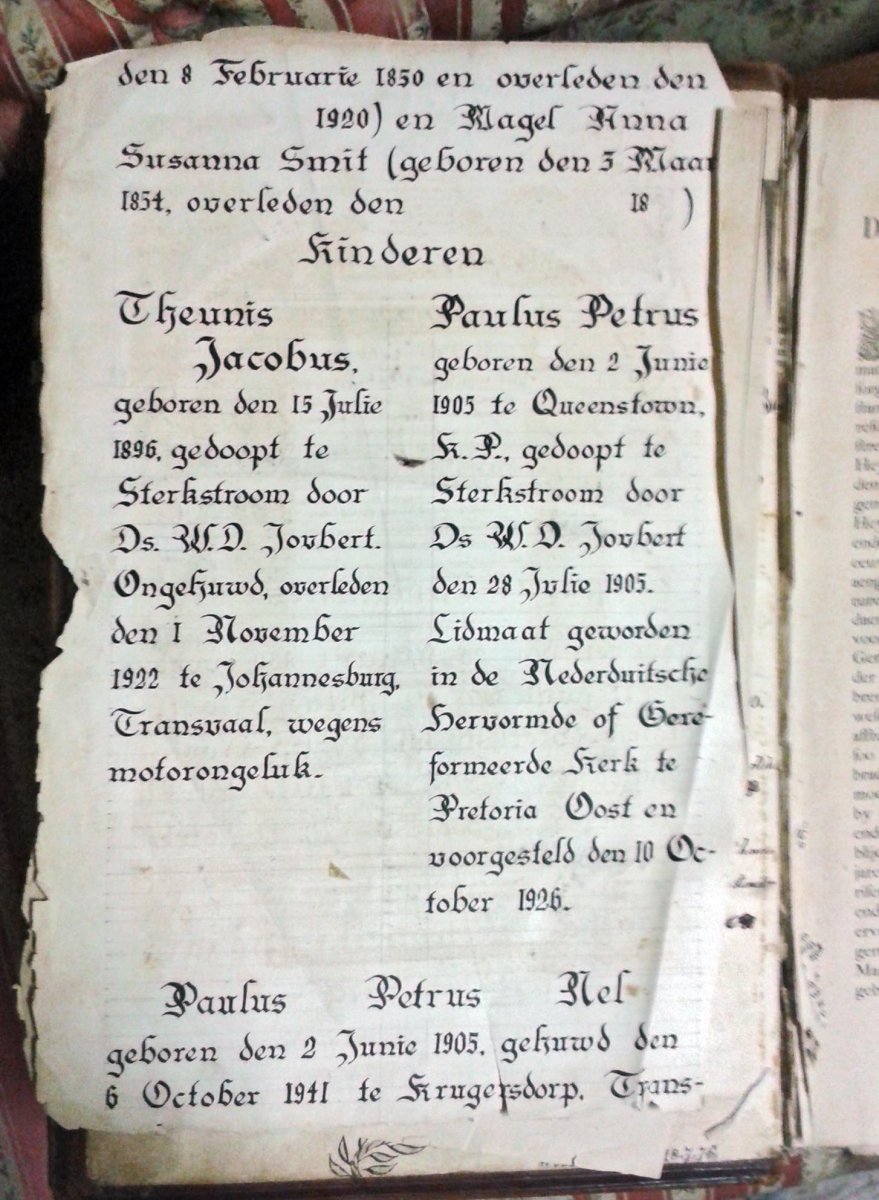 den 8 Februarie 1850 en overleden den
1920) en Magel Anna
Susanna Smit (geboren den 3 Maar
1854, overleden den 18 )
Kinderen
Theunis
Jacobus,
geboren den 15 Julie
1896, gedoopt te
Sterkstroom door
Ds. W.D. Joubert.
Ongehuwd, overleden
den 1 November
1922 te Johannesburg,
Transvaal, wegens
motorongeluk.
Paulus Petrus
geboren den 2 Junie
1905 te Queenstown,
K.P., gedoopt te
Sterkstroom door
Ds W.D. Joubert
den 28 Julie 1905.
Lidmaat geworden
in de Nederduitsche
Hervormde of Gere-
formeerde Kerk te
Pretoria Oost en
voorgesteld den 10 Oc-
tober 1926.
Paulus Petrus Nel
geboren den 2 Junie 1905, gehuwd den
6 October 1941 te Krugersdorp, Trans-
18-7-76